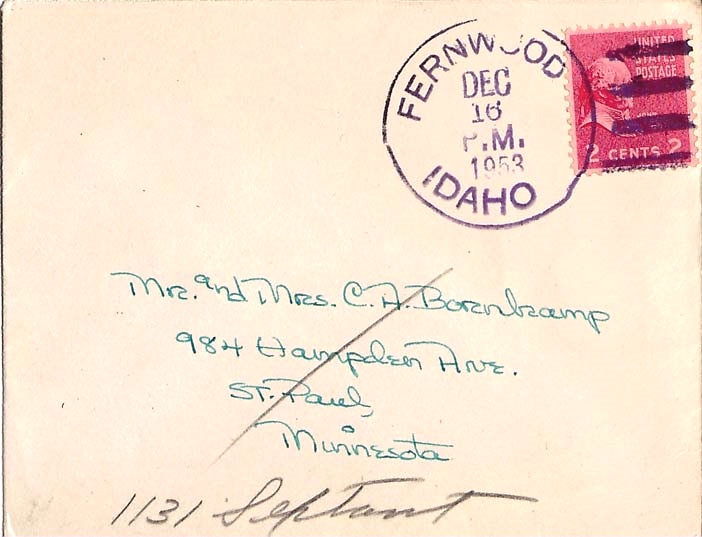 FERNWOOD
DEC
16
P.M.
1953
IDAHO
UNITED
STATES
POSTAGE
2 CENTS 2
Mr. and Mrs. C. A. Bornkamp
984 Hampden Ave.
St. Paul,
Minnesota
1131